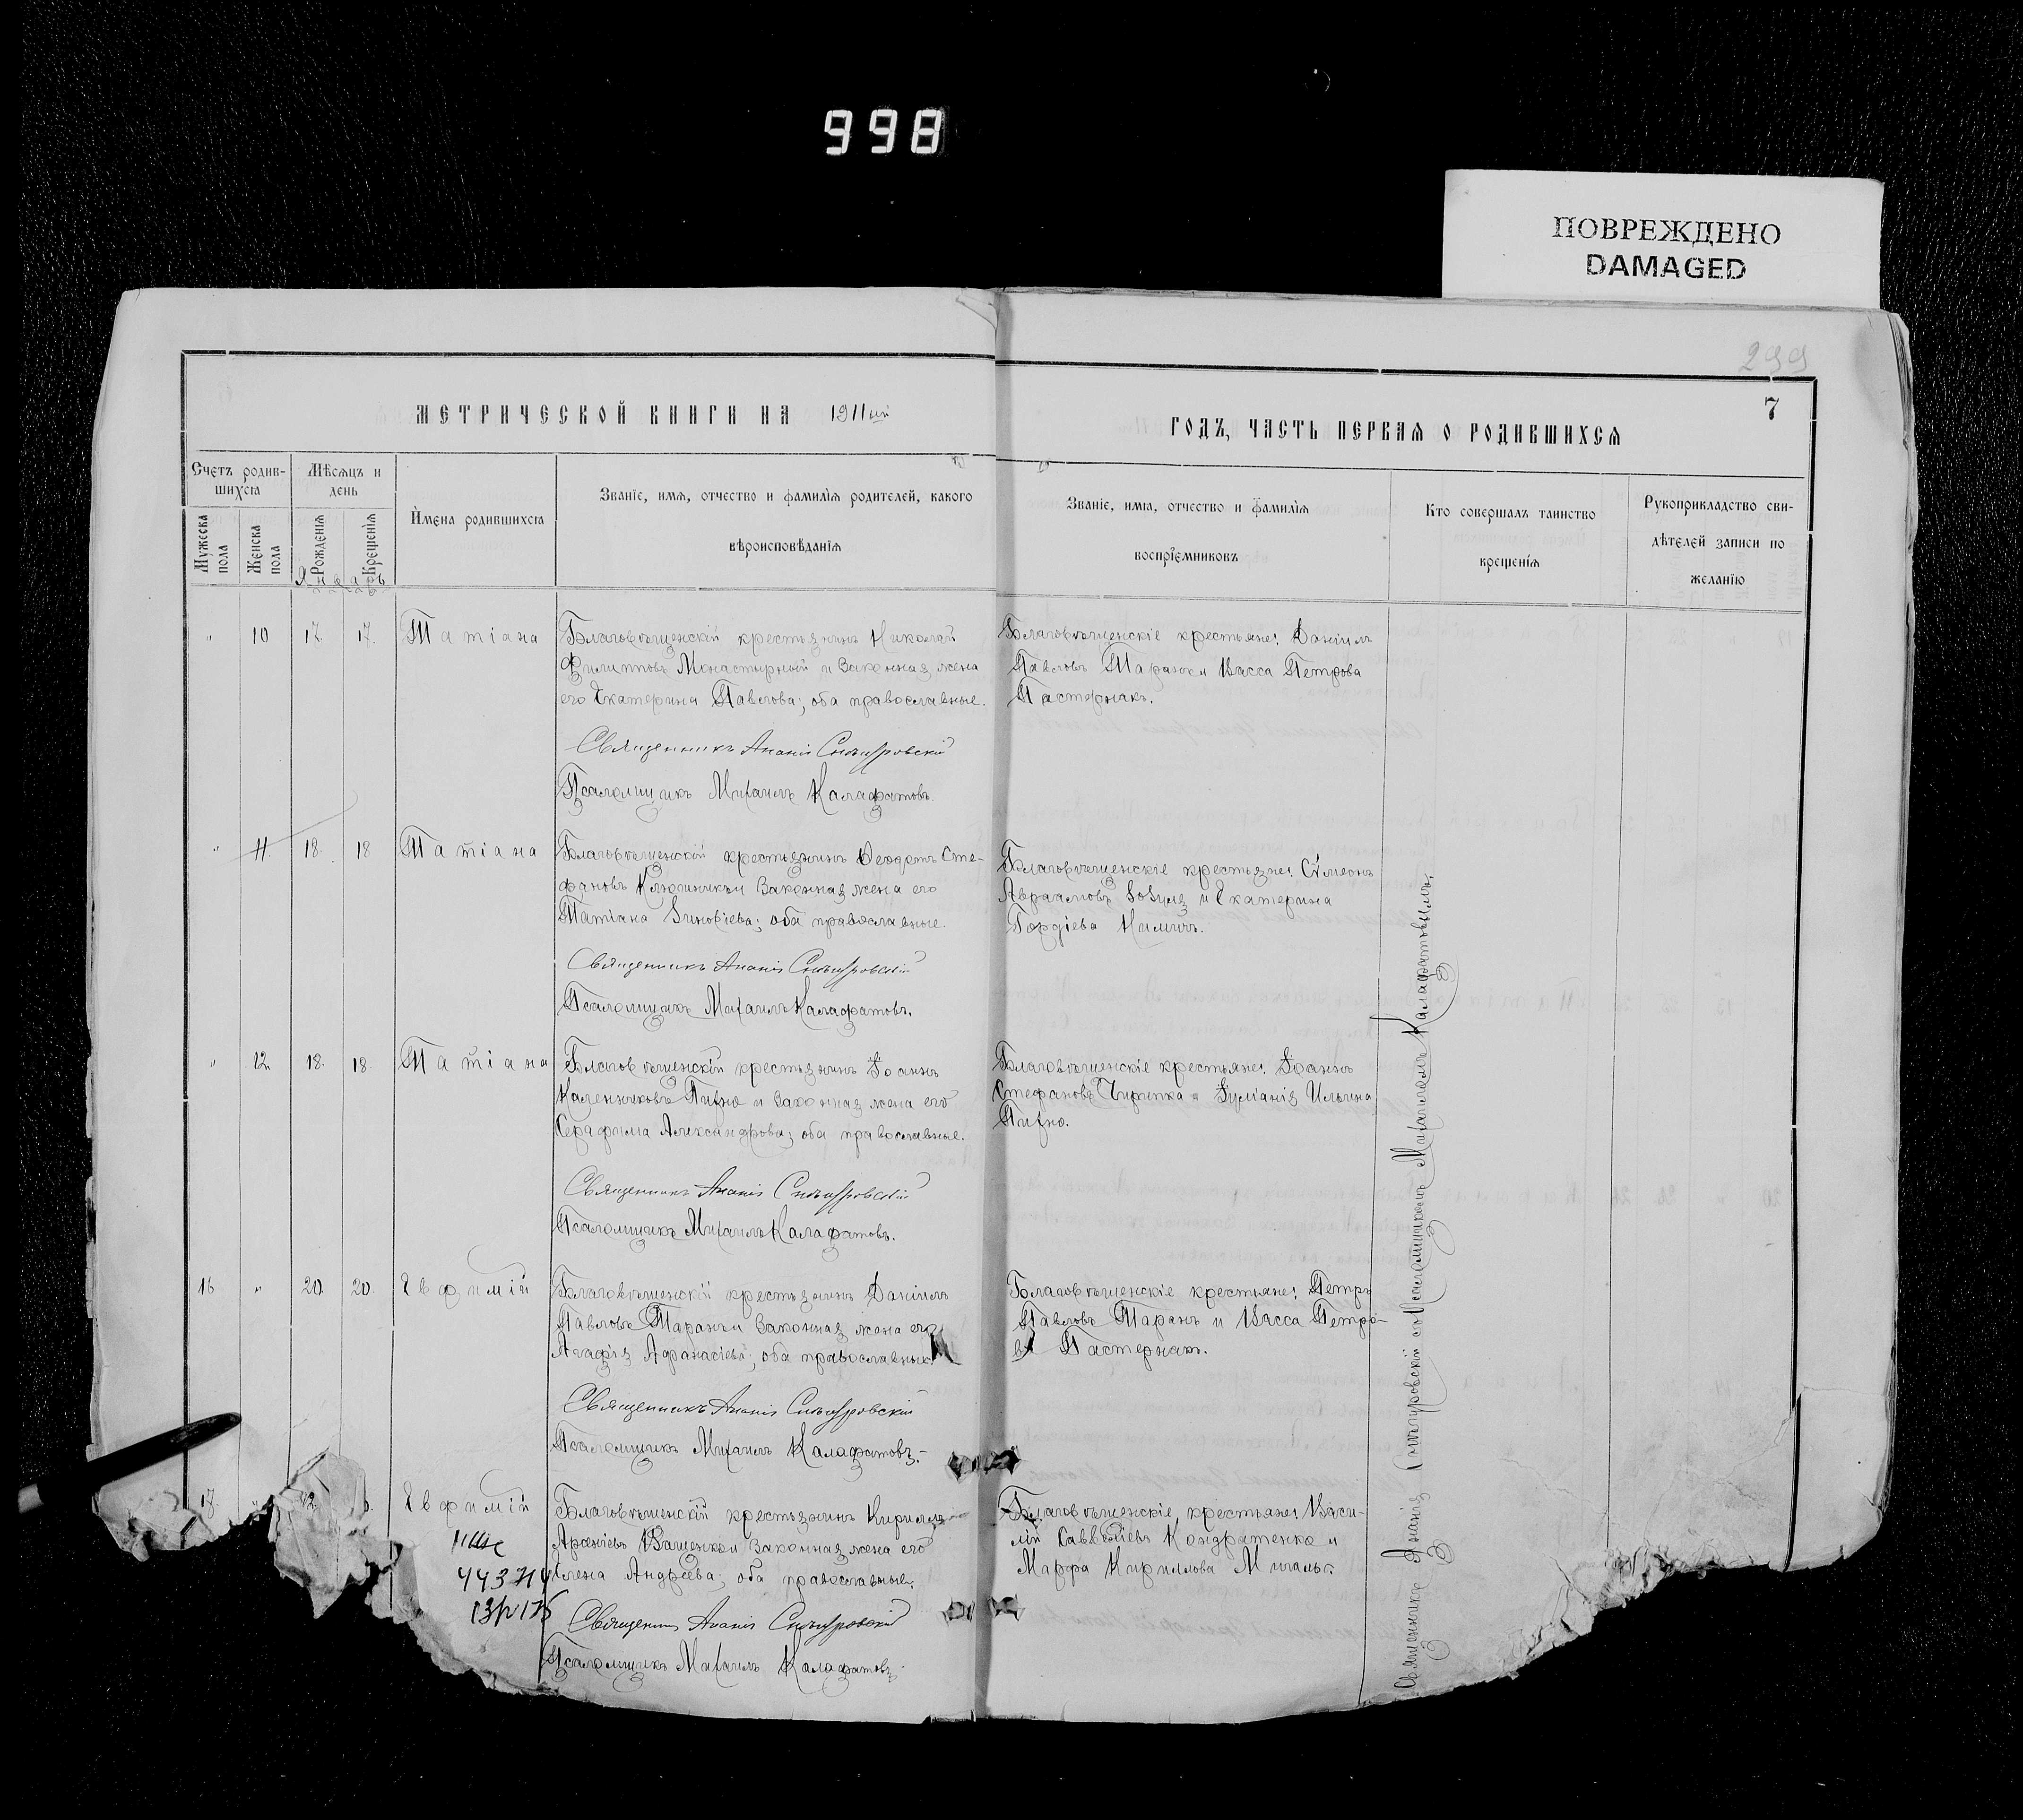 998
ПОВРЕЖДЕНО
DAMAGED
299
7
МЕТРИЧЕСКОЙ КНИГИ НА 1911 ый
ГОДЪ, ЧАСТЬ ПЕРВАЯ О РОДИВШИХСЯ
Счетъ родив-
шихся
Мѣсяцъ и
день
Имена родившихся
Званіе, имя, отчество и фамилія родителей, какого
вѣроисповѣданія
Званіе, имя, отчество и фамилія
воспріемниковъ
Кто совершалъ таинство
крещенія
Рукоприкладство сви-
дѣтелей записи по
желанію
Мужеска пола
Женска пола
Рожденія
Крещенія
Январь
" 10 17. 17. Татіана
Благовѣщенскій крестьянинъ Николай
Филипповъ Монастырный и законная жена
его Екатерина Павлова; оба православные.
Благовѣщенскіе крестьяне: Даніилъ
Павловъ Таранъ и Васса Петрова
Пастернакъ.
Священникъ Ананія Снѣгуровскій
Псаломщикъ Михаилъ Калафатовъ.
" 11. 18. 18 Татіана
Благовѣщенскій крестьянинъ Ѳеодотъ Сте-
фановъ Ключникъ и законная жена его
Татіана Зиновіева; оба православные.
Благовѣщенскіе крестьяне: Сѵмеонъ
Авраамовъ Зозуля и Екатерина
Гордіева Килимъ.
Священникъ Ананія Снѣгуровскій
Псаломщикъ Михаилъ Калафатовъ.
" 12 18. 18. Татіана
Благовѣщенскій крестьянинъ Іоаннъ
Каленниковъ Пихно и законная жена его
Серафима Александрова; оба православные.
Благовѣщенскіе крестьяне: Іоаннъ
Стефановъ Чирипка и Іуліанія Ильина
Пихно.
Священникъ Ананія Снѣгуровскій
Псаломщикъ Михаилъ Калафатовъ.
16 " 20. 20. Евфимій
Благовѣщенскій крестьянинъ Даніилъ
Павловъ Таранъ и законная жена его
Агафія Афанасіева; оба православные.
Благовѣщенскіе крестьяне: Петръ
Павловъ Таранъ и Васса Петро-
ва Пастернакъ.
Священникъ Ананія Снѣгуровскій
Псаломщикъ Михаилъ Калафатовъ.
17. Евфимій
Благовѣщенскій крестьянинъ Кириллъ
Арсеніевъ Ващенко и законная жена его
Елена Андреева; оба православные.
Благовѣщенскіе крестьяне: Васи-
лій Савватіевъ Кондратенко и
Марфа Кириллова Мигаль.
44374
Священникъ Ананія Снѣгуровскій
Псаломщикъ Михаилъ Калафатовъ.
Священникъ Ананія Снѣгуровскій съ Псаломщикомъ Михаиломъ Калафатовымъ.